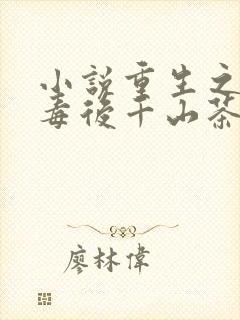 小説重生之
毒後千山茶
廖林偉